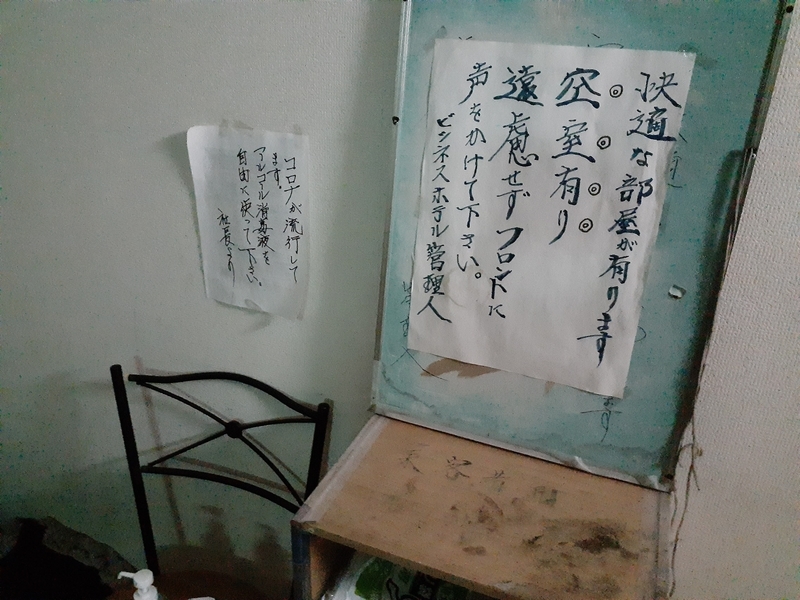 快適な部屋が有ります
空室有り
遠慮せずフロントに
声をかけて下さい。
ビジネスホテル管理人
コロナが流行して
ます。
アルコール消毒液を
自由に使って下さい。
社長より